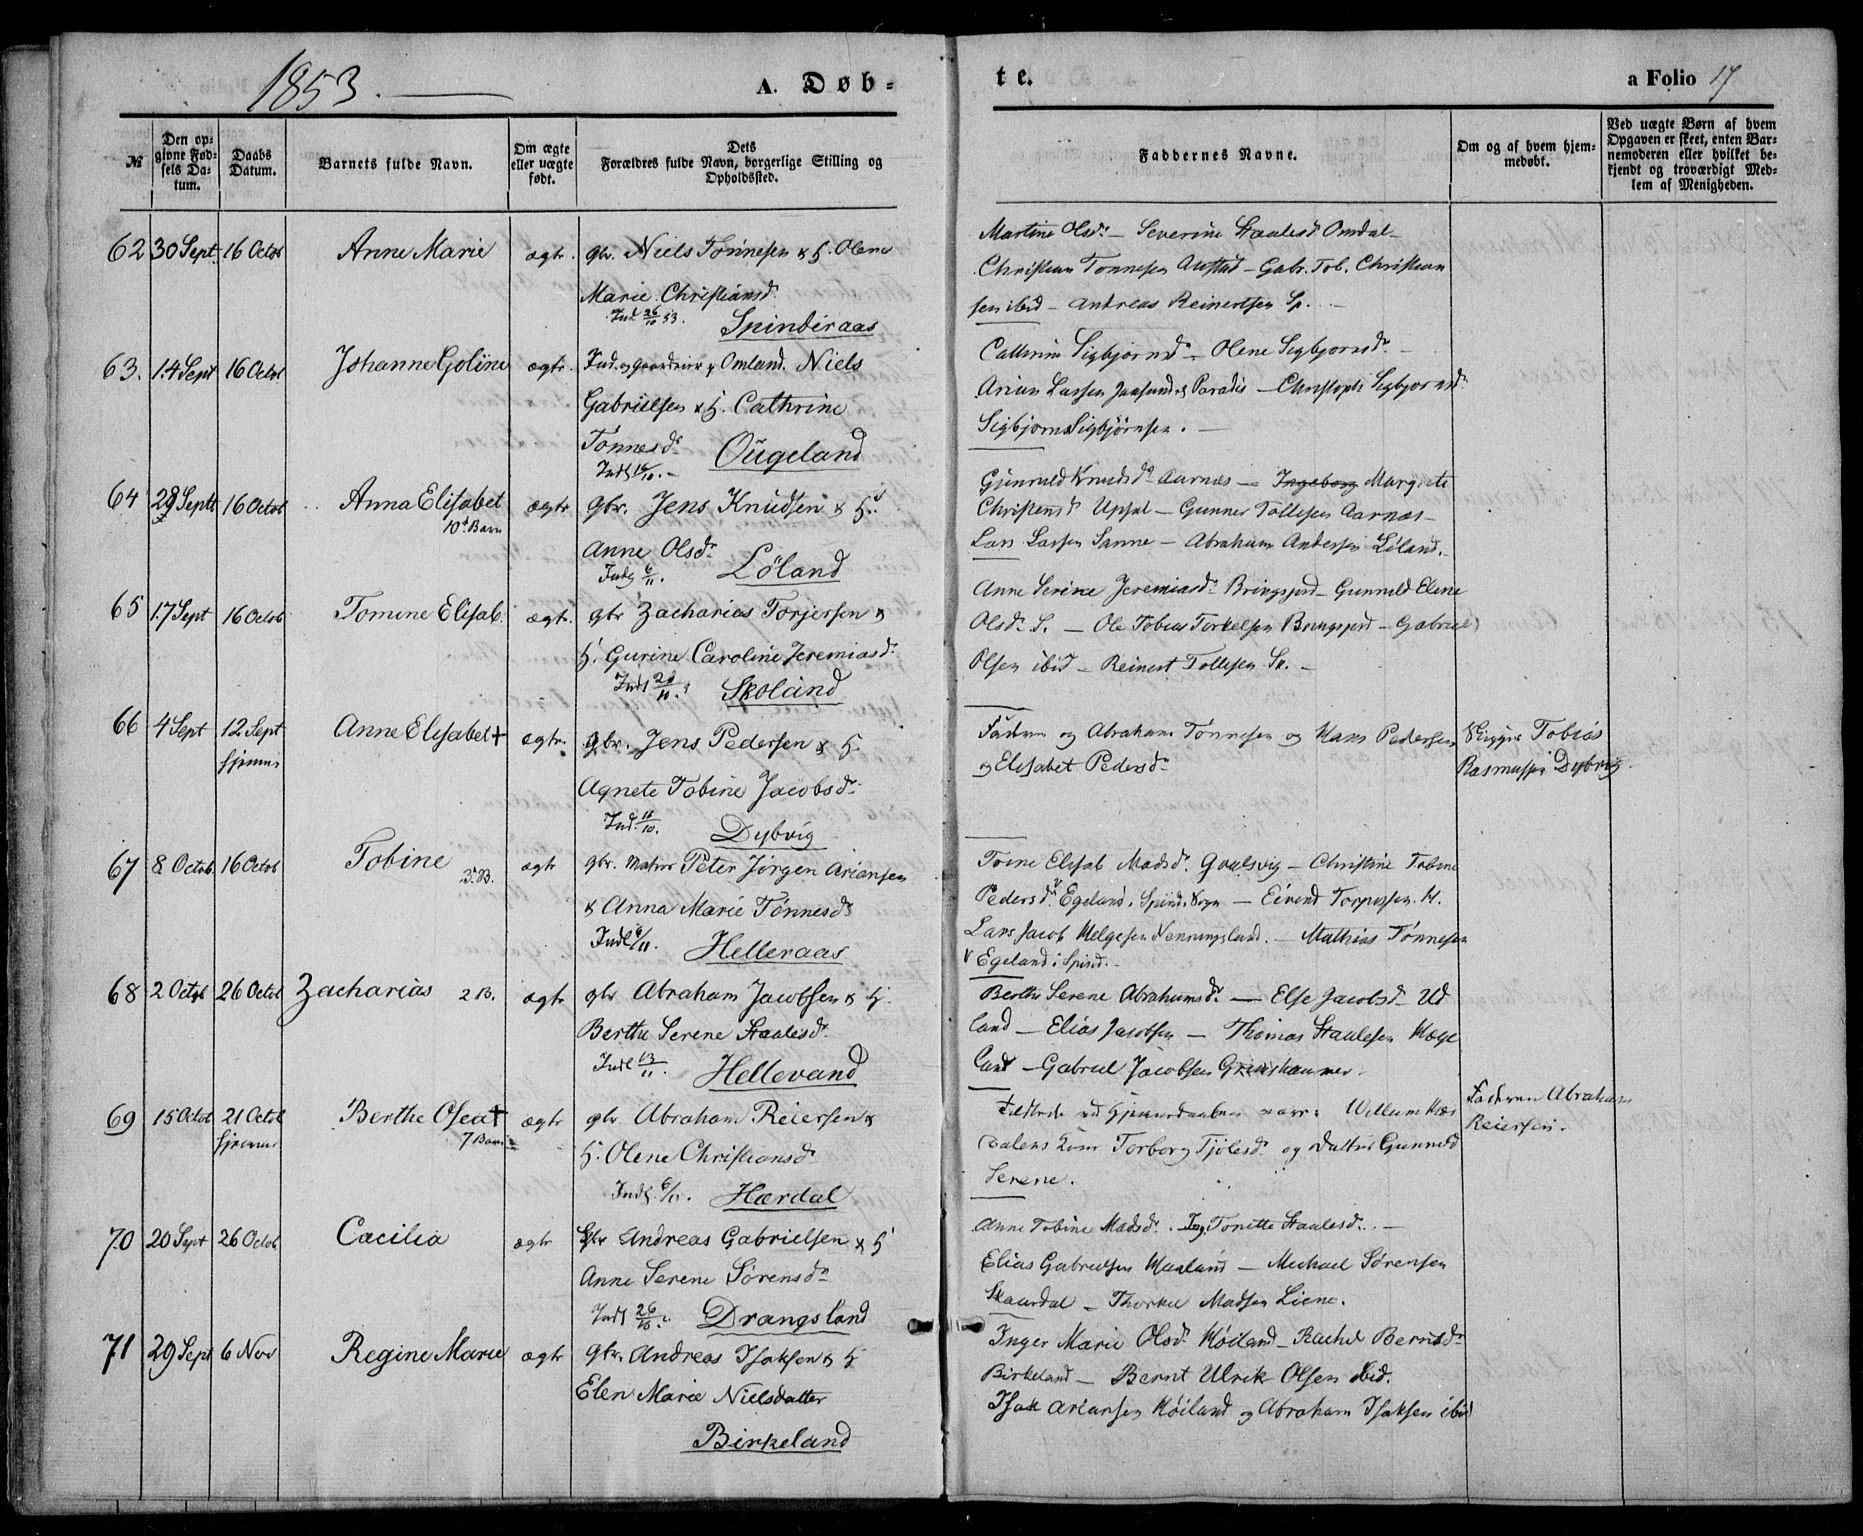 1853.
A. Døb-
te.
a Folio 17
№
Den op-
givne Fød-
sels Da-
tum.
Daabs
Datum.
Barnets fulde Navn.
Om ægte
eller uægte
født.
Dets
Forældres fulde Navn, borgerlige Stilling og
Opholdssted.
Faddernes Navne.
Om og af hvem hjem-
medøbt.
Ved uægte Børn af hvem
Opgaven er skeet, enten Bar-
nemoderen eller hvilket be-
kjendt og troværdigt Med-
lem af Menigheden.
62 30 Sept. 16 Octob Anne Marie ægtr. gbr. Niels Tønnesen & H. Olene
Marie Christiansd.
Ind. 26/10 53. Spinderaas
Martine Olsd. – Severine Staalesd Omdal –
Christian Tønnesen Austad – Gabr. Tob. Christian
sen ibid – Andreas Reinertsen Sp. –
63. 14 Sept 16 Octob Johanne Goline ægtr. Ind. og Omland. Niels
Gabrielsen & H. Cathrine
Tønnesd.
Indl 16/10. – Ougeland
Cathrine Sigbjørnsd – Olene Sigbjornsd. –
Arian Larssen Paradis – Christoph Sigbjørnsd
Sigbjørn Sigbjørnsen. –
64 28 Septb 16 Octob Anna Elisabet ægtr gbr. Jens Knudsen & H.
10d Barn
Anne Olsd.
Indg 6/11. Löland
Gunvald Knudsd Aarnæs – Ingeborg Margrete
Christensd Upsal – Gunner Tollefsen Aarnæs –
Lars Larsen Sanne – Abraham Andersen Löland.
65 17 Sept 16 Octob Tomine Elisab. ægtr. gbr Zacharias Torjersen &
H. Gurine Caroline Jeremiasd.
Indl 29/10. Skoland
Anne Serine Jeremiasd. Bringsjord – Gunvald Elene
Olsd. S. – Ole Tobias Torkelsen Bringsjord – Gabriel
Olsen ibid – Reinert Tollefsen Sk. –
66 4 Sept 12 Sept Anne Elisabet + ægtr. gbr. Jens Pedersen & H.
hjemme
Agnete Tobine Jacobsd.
Ind. 16/10. Dybvig
Faderen og Abraham Tønnesen og Hans Pedersen
og Elisabet Pedersd.
Tobias
Rasmussen Dybvig.
67 8 Octob. 16 Octob Tobine 3. B. ægtr gbr. Matros Peter Jørgen Ariansen
& Anna Marie Tønnesd
Indl 6/11. Helleraas
Tone Elisab Madsd. Gaulsvig – Christine Tobine
Pedersd. Egeland, Spind Sogn – Eivend Torjussen H.
Lars Jacob Helgesen Nenningsland. – Mathias Tønnesen
Egeland i Spind. –
68 2 Octob 26 Octob Zacharias 2 B. ægtr gbr Abraham Jacobsen & H.
Berthe Serene Staalesd.
Indl 13/11. Hellevand
Berthe Serene Abrahamsd. – Else Jacobsd. Ud
land – Elias Jacobsen – Thomas Staalesen Hæge
land – Gabriel Jacobsen Grimshammer.
69 15 Octob 21 Octob Berthe Osea + ægtr gbr Abraham Reiersen &
hjemme
7 Barn
H. Olene Christiansd.
Indl. 6/11. Hærdal
Tilstede ved Hjemmedaaben vare: Willum Hær
dalens Kone Torborg Tjølesd. og Datter Gunvald
Serene.
Faderen Abraham
Reiersen.
70 20 Sept 26 Octob Cacilia ægtr gbr Andreas Gabrielsen & H
Anne Serene Sørensd.
Indl 26/10. Drangsland
Anne Tobine Madsd. Ing. Tonette Staalesd. –
Elias Gabrielsen Haaland – Michael Sørensen
Skaardal – Thorkel Madsen Liene.
71 29 Sept 6 Nov Regine Marie ægtr gbr. Andreas Isaksen & H
Elen Marie Nielsdatter
Birkeland
Inger Marie Olsd. Höiland – Rachel Berntsd.
Birkeland – Bernt Ulrik Olsen ibid.
Isak Ariansen Höiland og Abraham Isaksen ibid